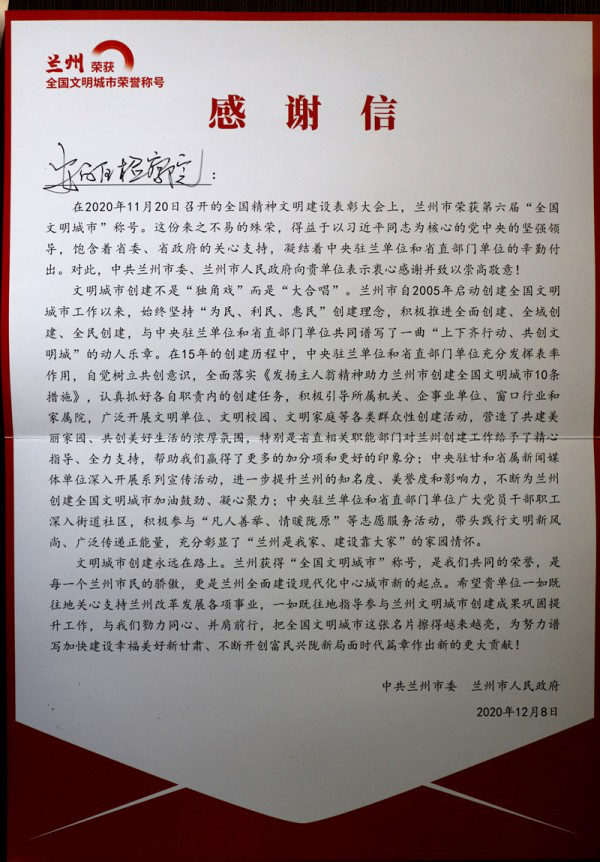 兰州 荣获
全国文明城市荣誉称号
感谢信
检察院：
在2020年11月20日召开的全国精神文明建设表彰大会上，兰州市荣获第六届“全国
文明城市”称号。这份来之不易的殊荣，得益于以习近平同志为核心的党中央的坚强领
导，饱含着省委、省政府的关心支持，凝结着中央驻兰单位和省直部门单位的辛勤付
出。对此，中共兰州市委、兰州市人民政府向贵单位表示衷心感谢并致以崇高敬意！
文明城市创建不是“独角戏”而是“大合唱”。兰州市自2005年启动创建全国文明
城市工作以来，始终坚持“为民、利民、惠民”创建理念，积极推进全面创建、全域创
建、全民创建，与中央驻兰单位和省直部门单位共同谱写了一曲“上下齐行动、共创文
明城”的动人乐章。在15年的创建历程中，中央驻兰单位和省直部门单位充分发挥表率
作用，自觉树立共创意识，全面落实《发扬主人翁精神助力兰州市创建全国文明城市10条
措施》，认真抓好各自职责内的创建任务，积极引导所属机关、企事业单位、窗口行业和
家属院，广泛开展文明单位、文明校园、文明家庭等各类群众性创建活动，营造了共建美
丽家园、共创美好生活的浓厚氛围，特别是省直相关职能部门对兰州创建工作给予了精心
指导、全力支持，帮助我们赢得了更多的加分项和更好的印象分；中央驻甘和省属新闻媒
体单位深入开展系列宣传活动，进一步提升兰州的知名度、美誉度和影响力，不断为兰州
创建全国文明城市加油鼓劲、凝心聚力；中央驻兰单位和省直部门单位广大党员干部职工
深入街道社区，积极参与“凡人善举、情暖陇原”等志愿服务活动，带头践行文明新风
尚、广泛传递正能量，充分彰显了“兰州是我家、建设靠大家”的家园情怀。
文明城市创建永远在路上。兰州获得“全国文明城市”称号，是我们共同的荣誉，是
每一个兰州市民的骄傲，更是兰州全面建设现代化中心城市新的起点。希望贵单位一如既
往地关心支持兰州改革发展各项事业，一如既往地指导参与兰州文明城市创建成果巩固提
升工作，与我们勠力同心、并肩前行，把全国文明城市这张名片擦得越来越亮，为努力谱
写加快建设幸福美好新甘肃、不断开创富民兴陇新局面时代篇章作出新的更大贡献！
中共兰州市委 兰州市人民政府
2020年12月8日